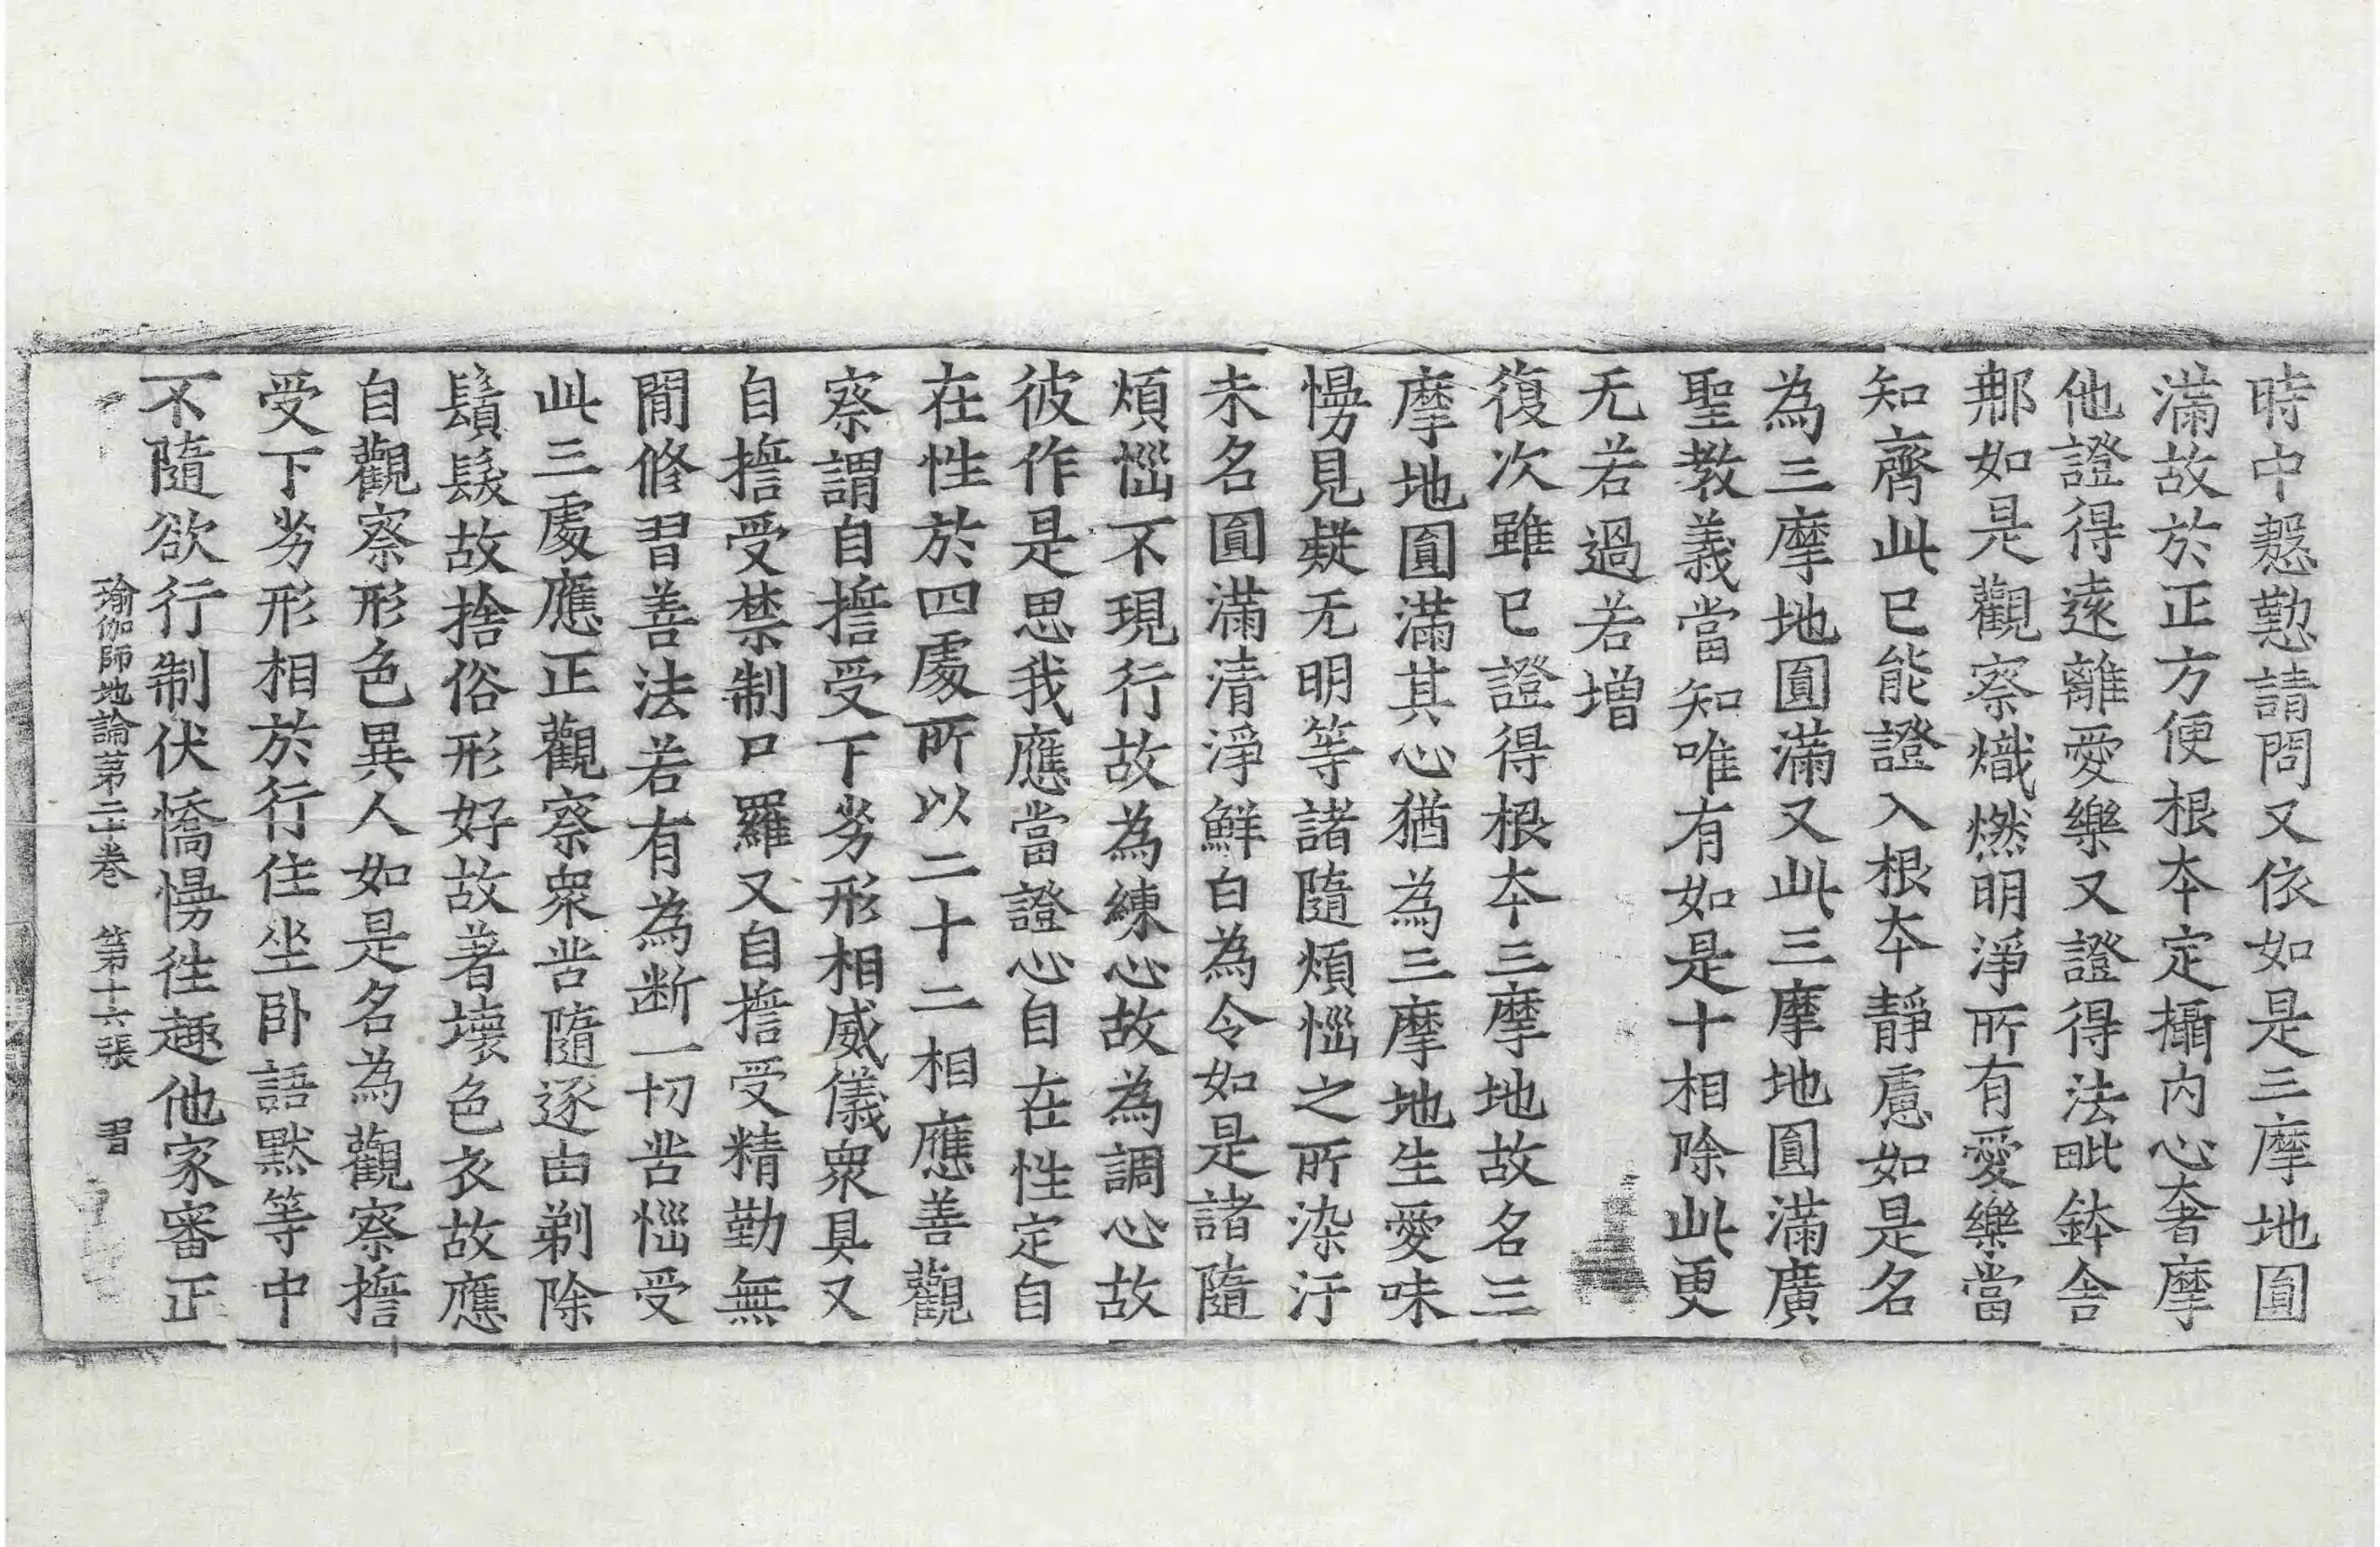 時中慇懃請問又依如是三摩地圓
滿故於正方便根本定攝内心奢摩
他證得遠離愛樂又證得法毗鉢舍
那如是觀察熾燃明淨所有愛樂當
知齊此已能證入根本靜慮如是名
為三摩地圓滿又此三摩地圓滿廣
聖教義當知唯有如是十相除此更
无若過若增
復次雖已證得根本三摩地故名三
摩地圓滿其心猶為三摩地生愛味
慢見疑无明等諸隨煩惱之所染汙
未名圓滿清淨鮮白為令如是諸隨
煩惱不現行故為練心故為調心故
彼作是思我應當證心自在性定自
在性於四處所以二十二相應善觀
察謂自擔受下劣形相威儀衆具又
自擔受禁制尸羅又自擔受精勤無
間修習善法若有為斷一切苦惱受
此三處應正觀察衆苦隨逐由剃除
鬚髮故捨俗形好故著壞色衣故應
自觀察形色異人如是名為觀察擔
受下劣形相於行住坐卧語默等中
不隨欲行制伏憍慢往趣他家審正
瑜伽師地論第二十卷 第十六張 習